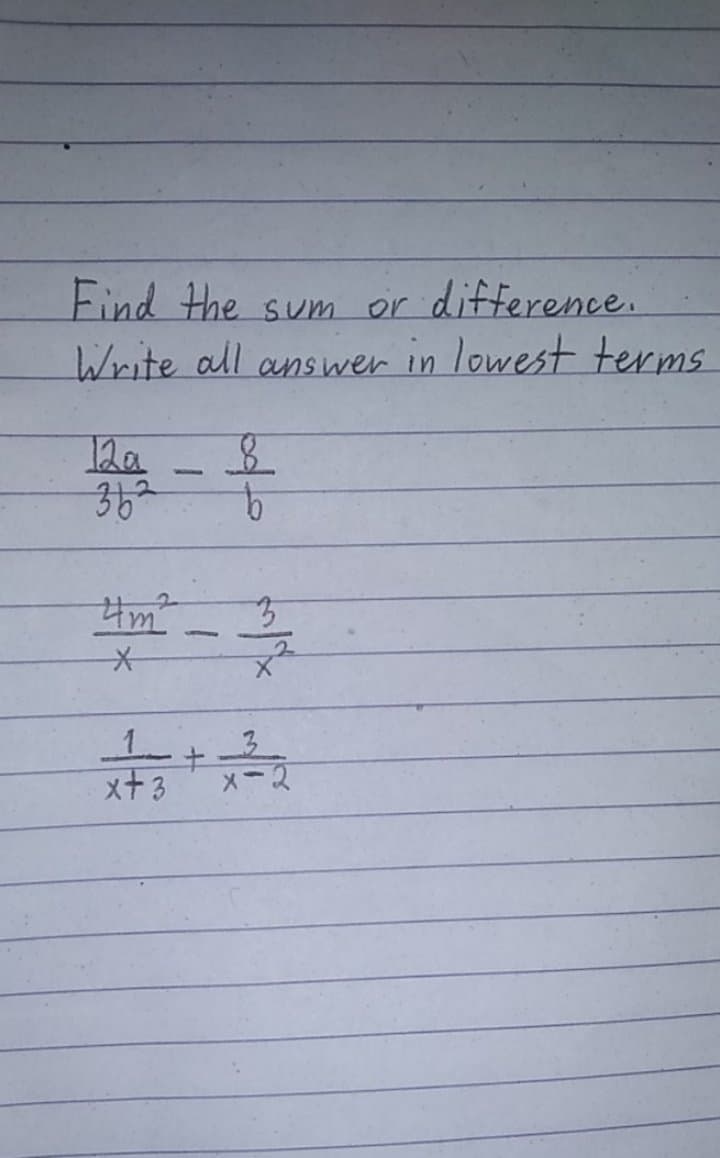 Find the sum or difference.
Write all answer in lowest terms
12a/3b² - 8/b
4m²/x - 3/x²
1/x+3 + 3/x-2